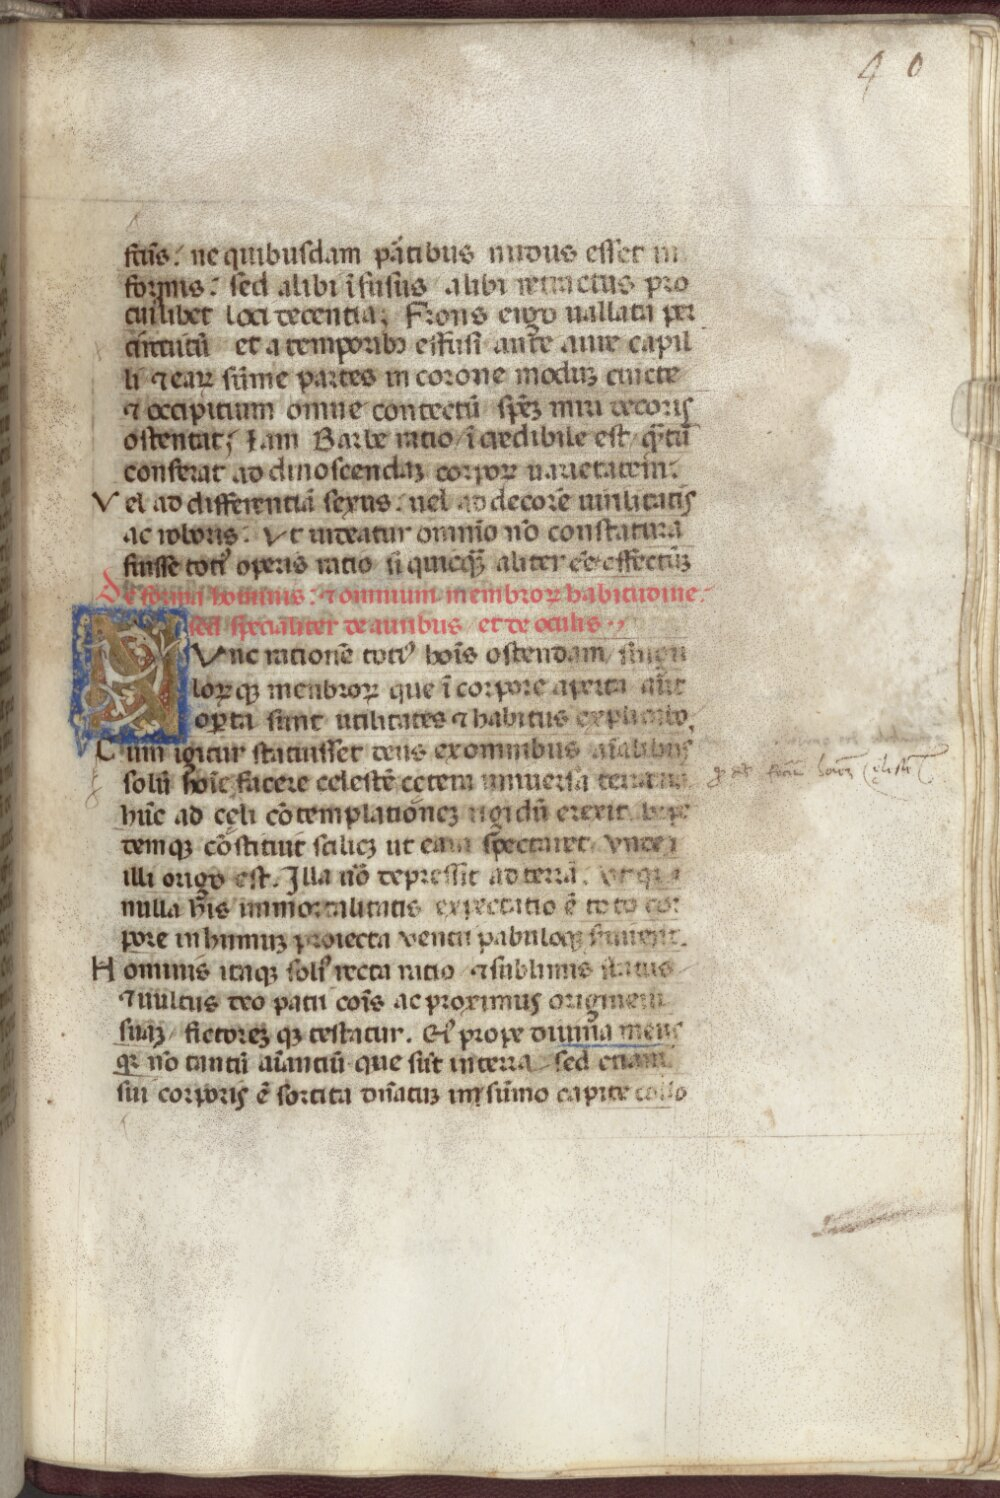 40
fctus: ne quibusdam ptibus nudus esset in
formis: sed alibi ĩfusus alibi retractus pro
cuilibet loci decentia; Frons ergo uallata per
circuitũ et a temporibꝰ effusi ante aure capil
li ⁊ earꝝ sũme partes in corone moduꝫ cincte
⁊ occipitium omne contectũ spẽꝫ miri decoris
ostentat; Iam Barbe ratio ĩcredibile est q̃tũ
conferat ad dinoscendaꝫ corporꝝ uarietatem:
Vel ad differentiã sexus: uel ad decorẽ uirilitatis
ac roboris: Vt uideatur omnĩo nõ constatura
fuisse totiꝰ operis ratio si quicq̃ aliter ẽe effectũꝫ
De forma hominis: ⁊ omnium membrorꝝ habitudine:
sed specialiter de auribus et de oculis
NVnc rationẽ totiꝰ hoĩs ostendam singu
lorꝝqꝫ menbrorꝝ que ĩ corpore aperta aut
operta sunt utilitates ⁊ habitus explicabo.
Cum igitur statuisset deus ex omnibus aĩalibus
solũ hoĩe facere celestẽ cetera uniuersa terrena
hũc ad celi cõtemplationeꝫ rigidũ erexit bipe
demqꝫ cõstituit scilicꝫ ut eam spectaret vnde
illi origo est. Illa nõ depressit ad terrã. Vt quia
nulla hĩs immortalitatis expectatio ẽ toto cor
pore in humuꝫ proiecta ventri pabuloqꝫ seruirent.
Hominis itaqꝫ soliꝰ recta ratio ⁊ sublimis status
⁊ uultus deo patri cõis ac proximus originem
suaꝫ fictoreꝫqꝫ testatur. Eiꝰ prope diuina mens
qꝛ nõ tantũ aĩantiũ que sũt in terra sed etiam
sui corporis ẽ sortita dñatuꝫ in sũmo capite collo